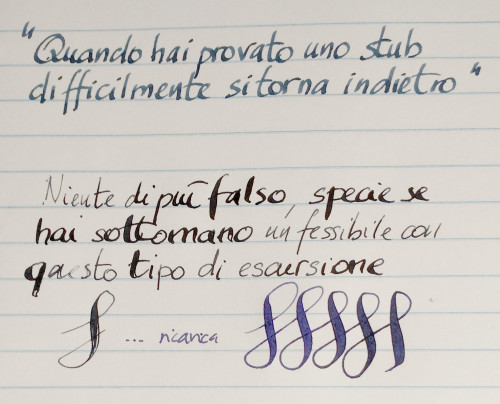 "Quando hai provato uno stub
difficilmente si torna indietro"
Niente di più falso, specie se
hai sottomano un fessibile con
questo tipo di escursione
f ... ricarica fffff